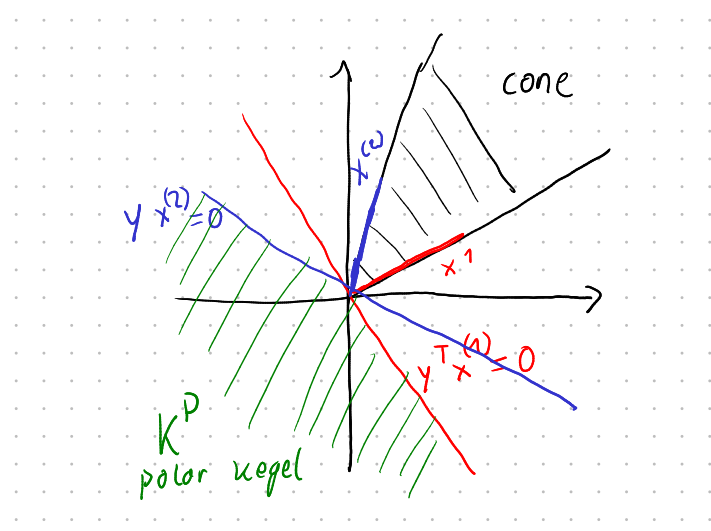 cone
x^(2)
y x^(2) = 0
x^1
y^T x^(1) = 0
K^P
polar kegel